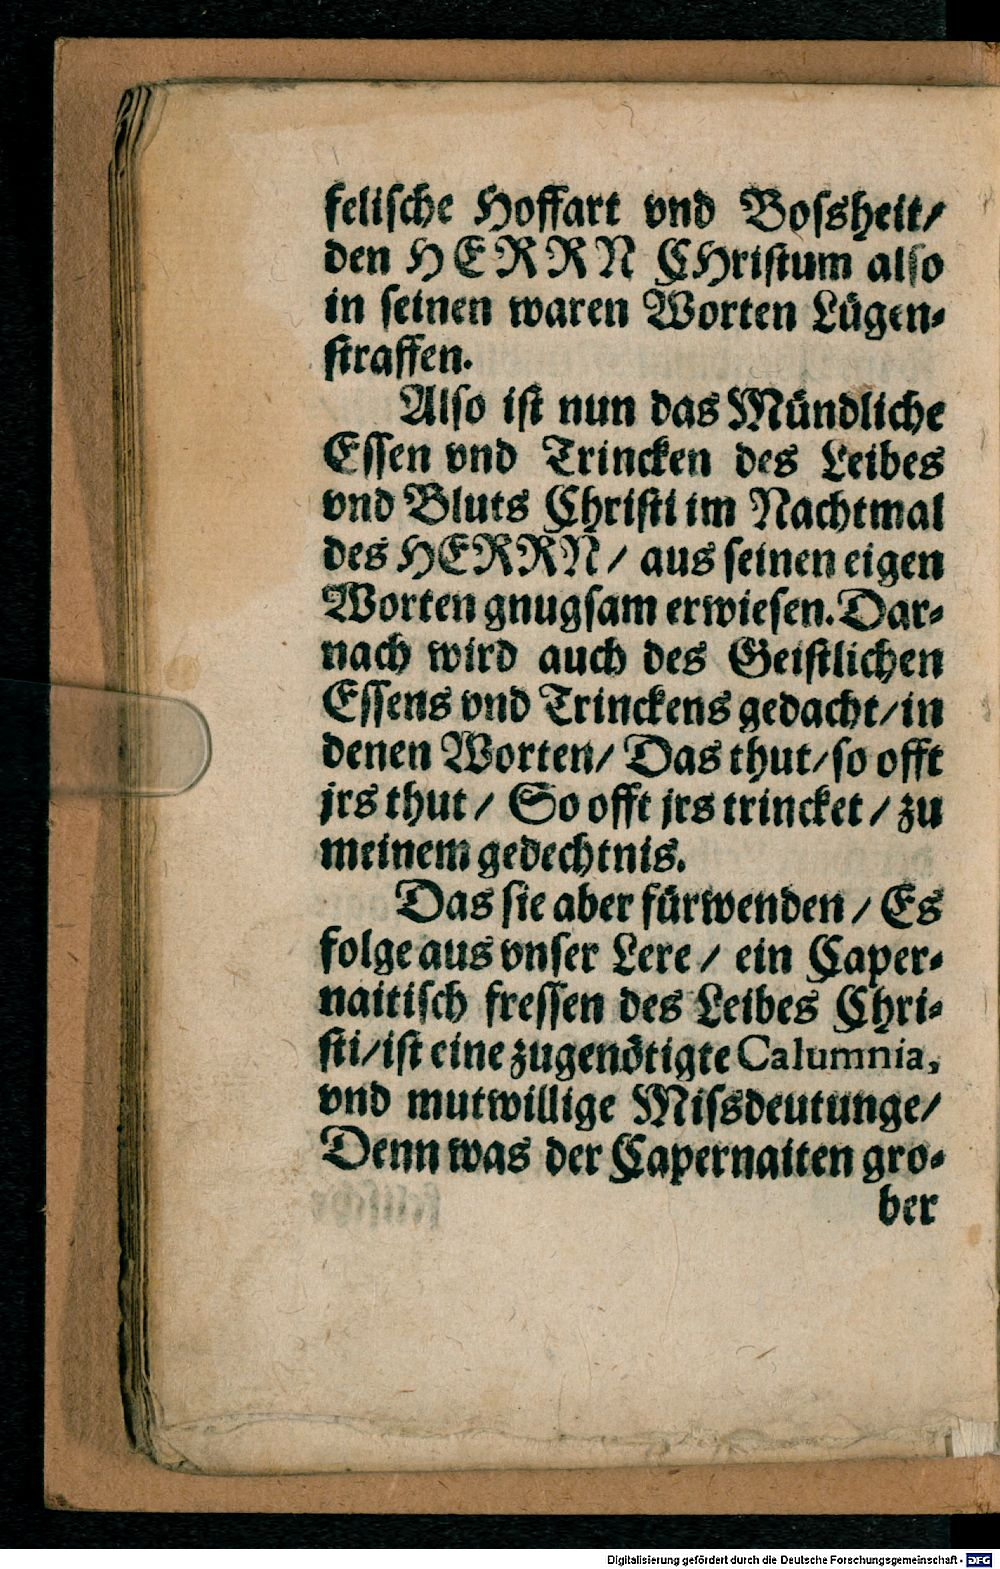 felische Hoffart vnd Bossheit/
den HERRN CHristum also
in seinen waren Worten Lügen-
straffen.
Also ist nun das Mündliche
Essen vnd Trincken des Leibes
vnd Bluts Christi im Nachtmal
des HERRN/ aus seinen eigen
Worten gnugsam erwiesen. Dar-
nach wird auch des Geistlichen
Essens vnd Trinckens gedacht/in
denen Worten/ Das thut/so offt
jrs thut/ So offt jrs trincket/ zu
meinem gedechtnis.
Das sie aber fürwenden/ Es
folge aus vnser Lere/ ein Caper-
naitisch fressen des Leibes Chri-
sti/ist eine zugenötigte Calumnia,
vnd mutwillige Missdeutunge/
Denn was der Capernaiten gro-
ber
Digitalisierung gefördert durch die Deutsche Forschungsgemeinschaft - DFG